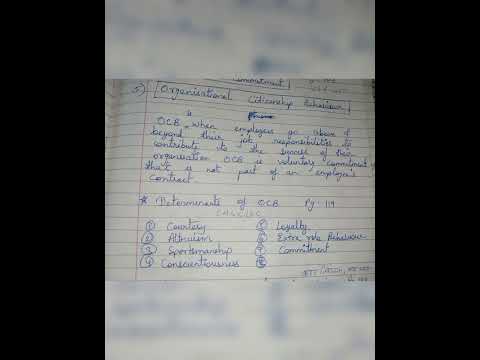 Commitment
5) Organisational Citizenship Behaviour
OCB is when employees go above &
beyond their job responsibilities to
contribute to the success of their
organisation. OCB is voluntary commitment
that is not part of an employee's
contract.
* Determinants of OCB Pg. 119
① Courtesy ⑤ Loyalty
② Altruism ⑥ Extra role Behaviour
③ Sportsmanship ⑦ Commitment
④ Conscientiousness ⑧